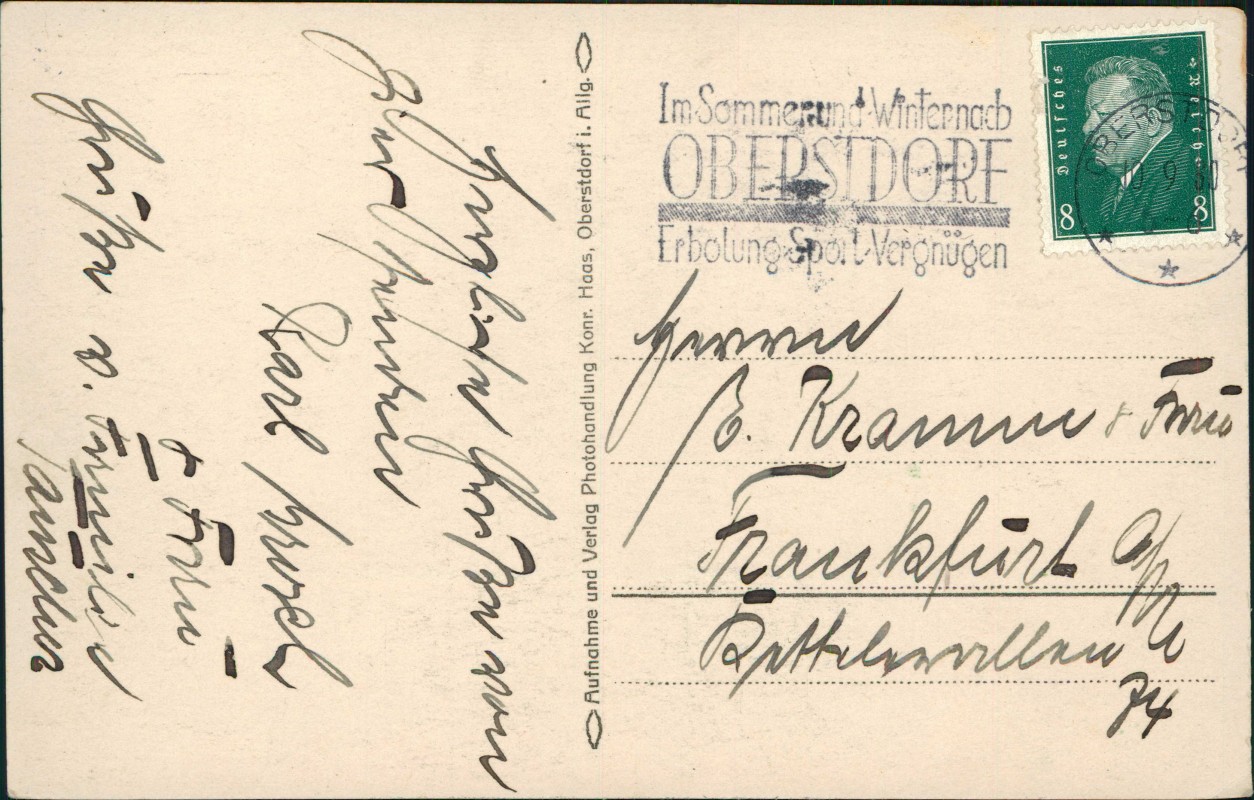 Herzliche Grüße vom
Karl
& Frau
Grüße v. Familie
Aufnahme und Verlag Photohandlung Konr. Haas, Oberstdorf i. Allg.
Im Sommer und Winter nach
OBERSTDORF
Erholung-Sport-Vergnügen
Deutsches Reich
8 8
OBERSTDORF
9 30
Herrn
E. Kramm & Frau
Frankfurt a/M
74